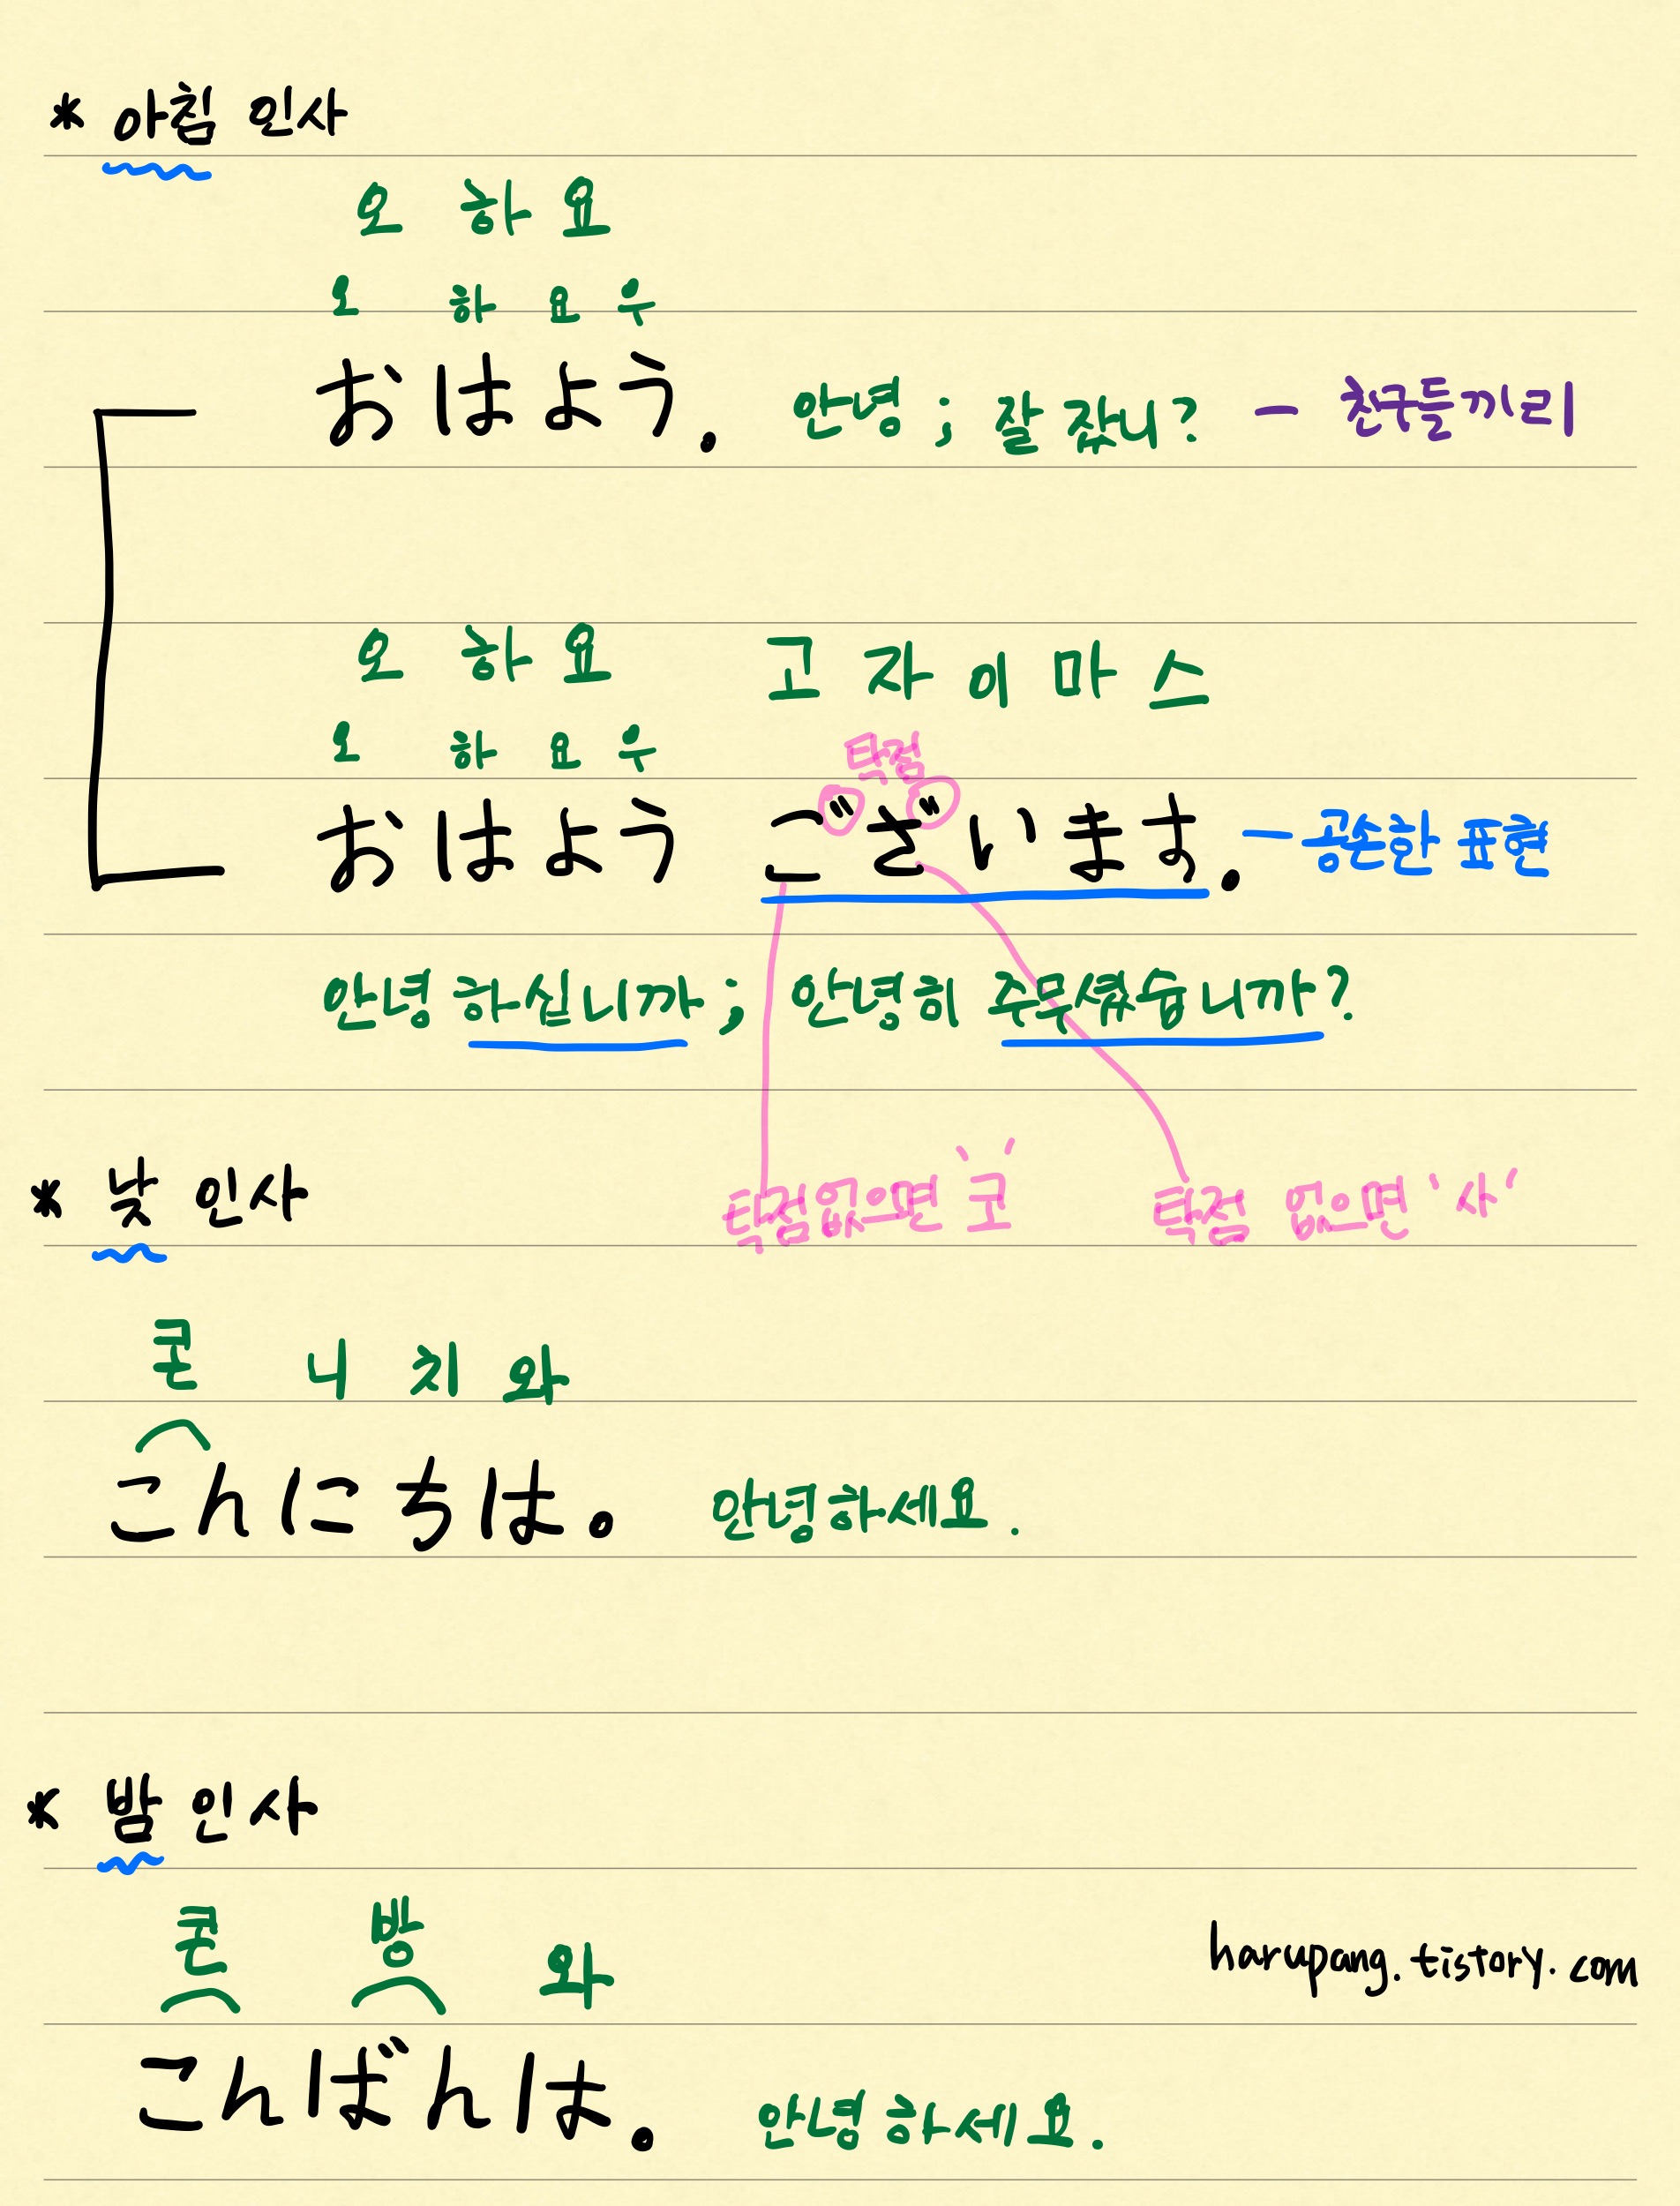 * 아침 인사
오 하 요
오 하 요 우
おはよう. 안녕 ; 잘 잤니? - 친구들끼리
오 하 요 고 자 이 마 스
오 하 요 우
탁점
おはよう ございます. - 공손한 표현
안녕 하십니까 ; 안녕히 주무셨습니까?
* 낮 인사
탁점없으면 '코' 탁점 없으면 '사'
콘 니 치 와
こんにちは。 안녕하세요.
* 밤 인사
콘 방 와
harupang.tistory.com
こんばんは。 안녕하세요.